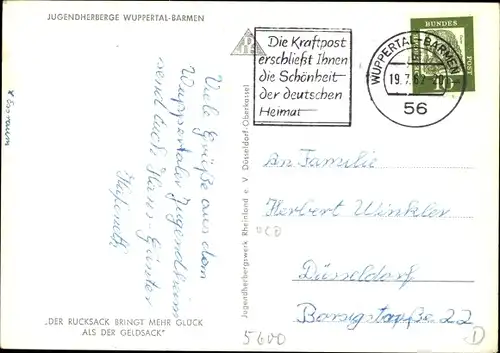 JUGENDHERBERGE WUPPERTAL-BARMEN
Viele Grüße aus dem
Wuppertaler Jugendheim
sendet euch Hans-Günter
"DER RUCKSACK BRINGT MEHR GLÜCK
ALS DER GELDSACK"
Jugendherbergswerk Rheinland e V Düsseldorf-Oberkassel
Die Kraftpost
erschließt Ihnen
die Schönheit
der deutschen
Heimat
WUPPERTAL-BARMEN
19.7.62-20
56
DEUTSCHE
BUNDES
POST
10
An Familie
Herbert Winkler
Düsseldorf
Borsigstraße 22
5600